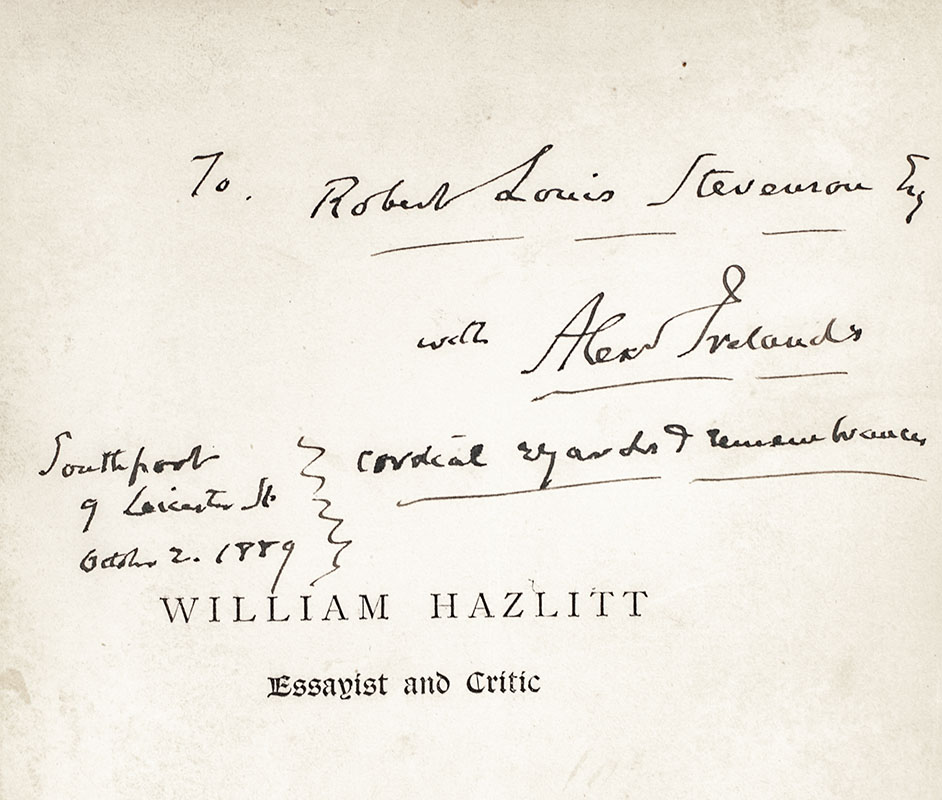 To. Robert Louis Stevenson Esq
with Alexr Ireland's
cordial regards & remembrances
Southport
9 Leicester St
October 2. 1889
WILLIAM HAZLITT
Essayist and Critic